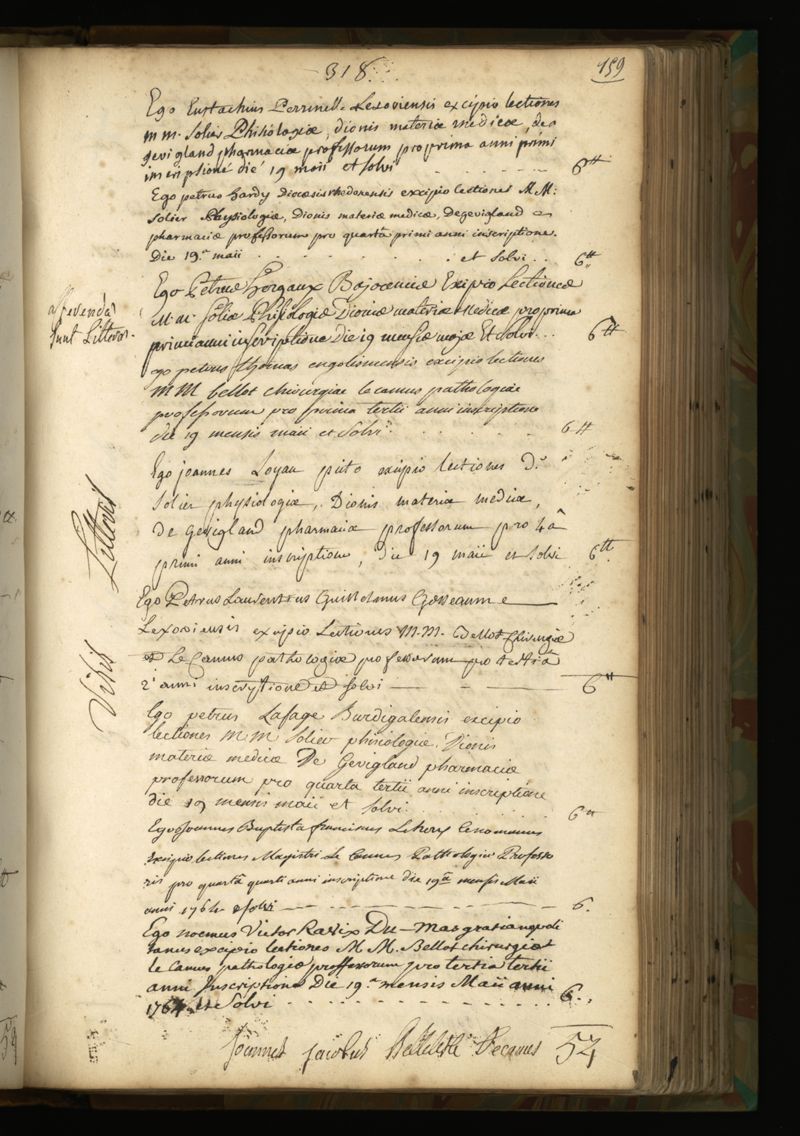 318
159
Ego Eustachius Perrinelle Lexoviensis excipio lectiones
m m. Solier Phisiologiæ, dionis materiæ medicæ, de
gevigland pharmaciæ professorum pro prima anni primi
inscriptione die 19 maii et solvi 6tt
Ego petrus hardy Diocæsis rhedonensis excipio lectiones M M:
Solier Physiologiæ, Dionis materiæ medicæ, De gevigland
pharmaciæ professorum pro quartâ primi anni inscriptione.
Die 19a maii et solvi 6tt
Ego Petrus Bajocencis Exipio Lectiones
M. m. Solier Phisiologiæ Dionis materiæ Medicæ pro prima
primi anni inscriptione Die 19 mensis Et Solvi 6tt
afferendæ
sunt Litteræ.
ego petrus thomas engolismensis excipio lectiones
MM bellot chirurgiæ le camus pathologiæ
professorum pro prima tertii anni inscriptione
die 19 mensis maii et solvi 6tt
Ego joannes Loyau picto excipio lectiones D.
Solier physiologiæ, Dionis materiæ medicæ,
De gevigland pharmaciæ professorum pro 4â
primi anni inscriptione, die 19 maii et solvi 6tt
Visis Litteris
Ego Petrus Laurentius Guillelmus Gosseaume
Lexoviensis excipio Lectiones M.M. Bellot Chirurgiæ
et Le Camus pathologiæ professorum pro tertiâ
2i anni inscriptione et solvi 6tt
Ego petrus Lafage Burdigalensis excipio
lectiones MM Solier phisiologiæ. Dionis
materiæ medicæ De Gevigland pharmaciæ
professorum pro quarta tertii anni inscriptione
die 19 mensis maii et solvi 6tt
Ego Joannes Baptista franciscus Lehery Cenomanus
Excipio lectiones Magistri Le Camus Pathologiæ Professo
ris pro quartâ quarti anni inscriptione die 19a mensis Maii
anni 1764 et solvi 6.
Ego Victor Du-mas gratianopoli
tanus excipio lectiones M M. Bellot chirurgiæ et
le Camus pathologiæ proffessorum pro tertia tertii
anni Inscriptione Die 19a mensis Maii anni
1764. et Solvi 6.
Joannes jacobus Belleteste Decanus 54